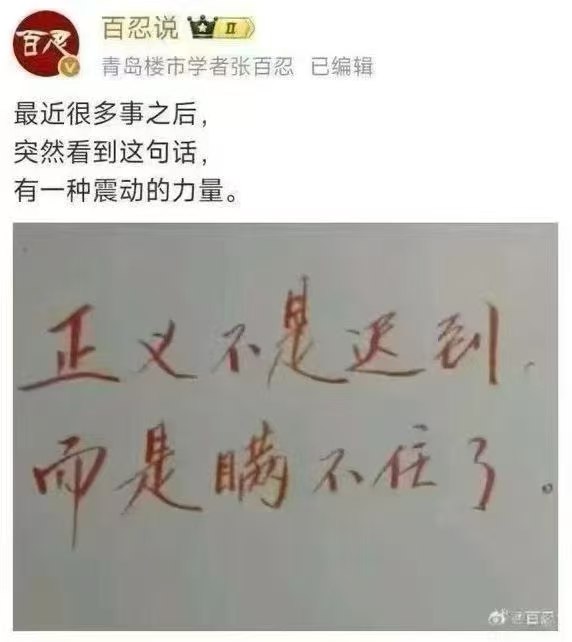 百忍
百忍说 II
青岛楼市学者张百忍 已编辑
最近很多事之后，
突然看到这句话，
有一种震动的力量。
正义不是迟到，
而是瞒不住了。
@百忍